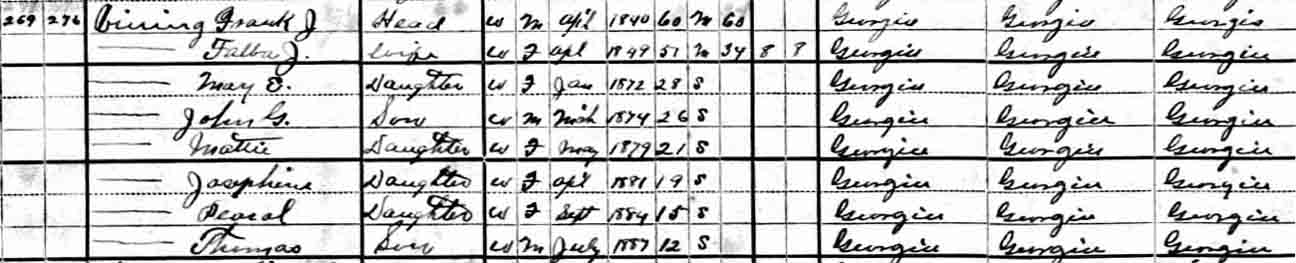 269 276 Vining Frank J Head W M Apil 1840 60 M 60 Georgia Georgia Georgia
— Talba J. Wife W F Apl 1849 51 M 34 8 8 Georgia Georgia Georgia
— May E. Daughter W F Jan 1872 28 S Georgia Georgia Georgia
— John G. Son W M Mch 1874 26 S Georgia Georgia Georgia
— Mattie Daughter W F May 1879 21 S Georgia Georgia Georgia
— Josephine Daughter W F Apil 1881 19 S Georgia Georgia Georgia
— Pearl Daughter W F Sept 1884 15 S Georgia Georgia Georgia
— Thomas Son W M July 1887 12 S Georgia Georgia Georgia